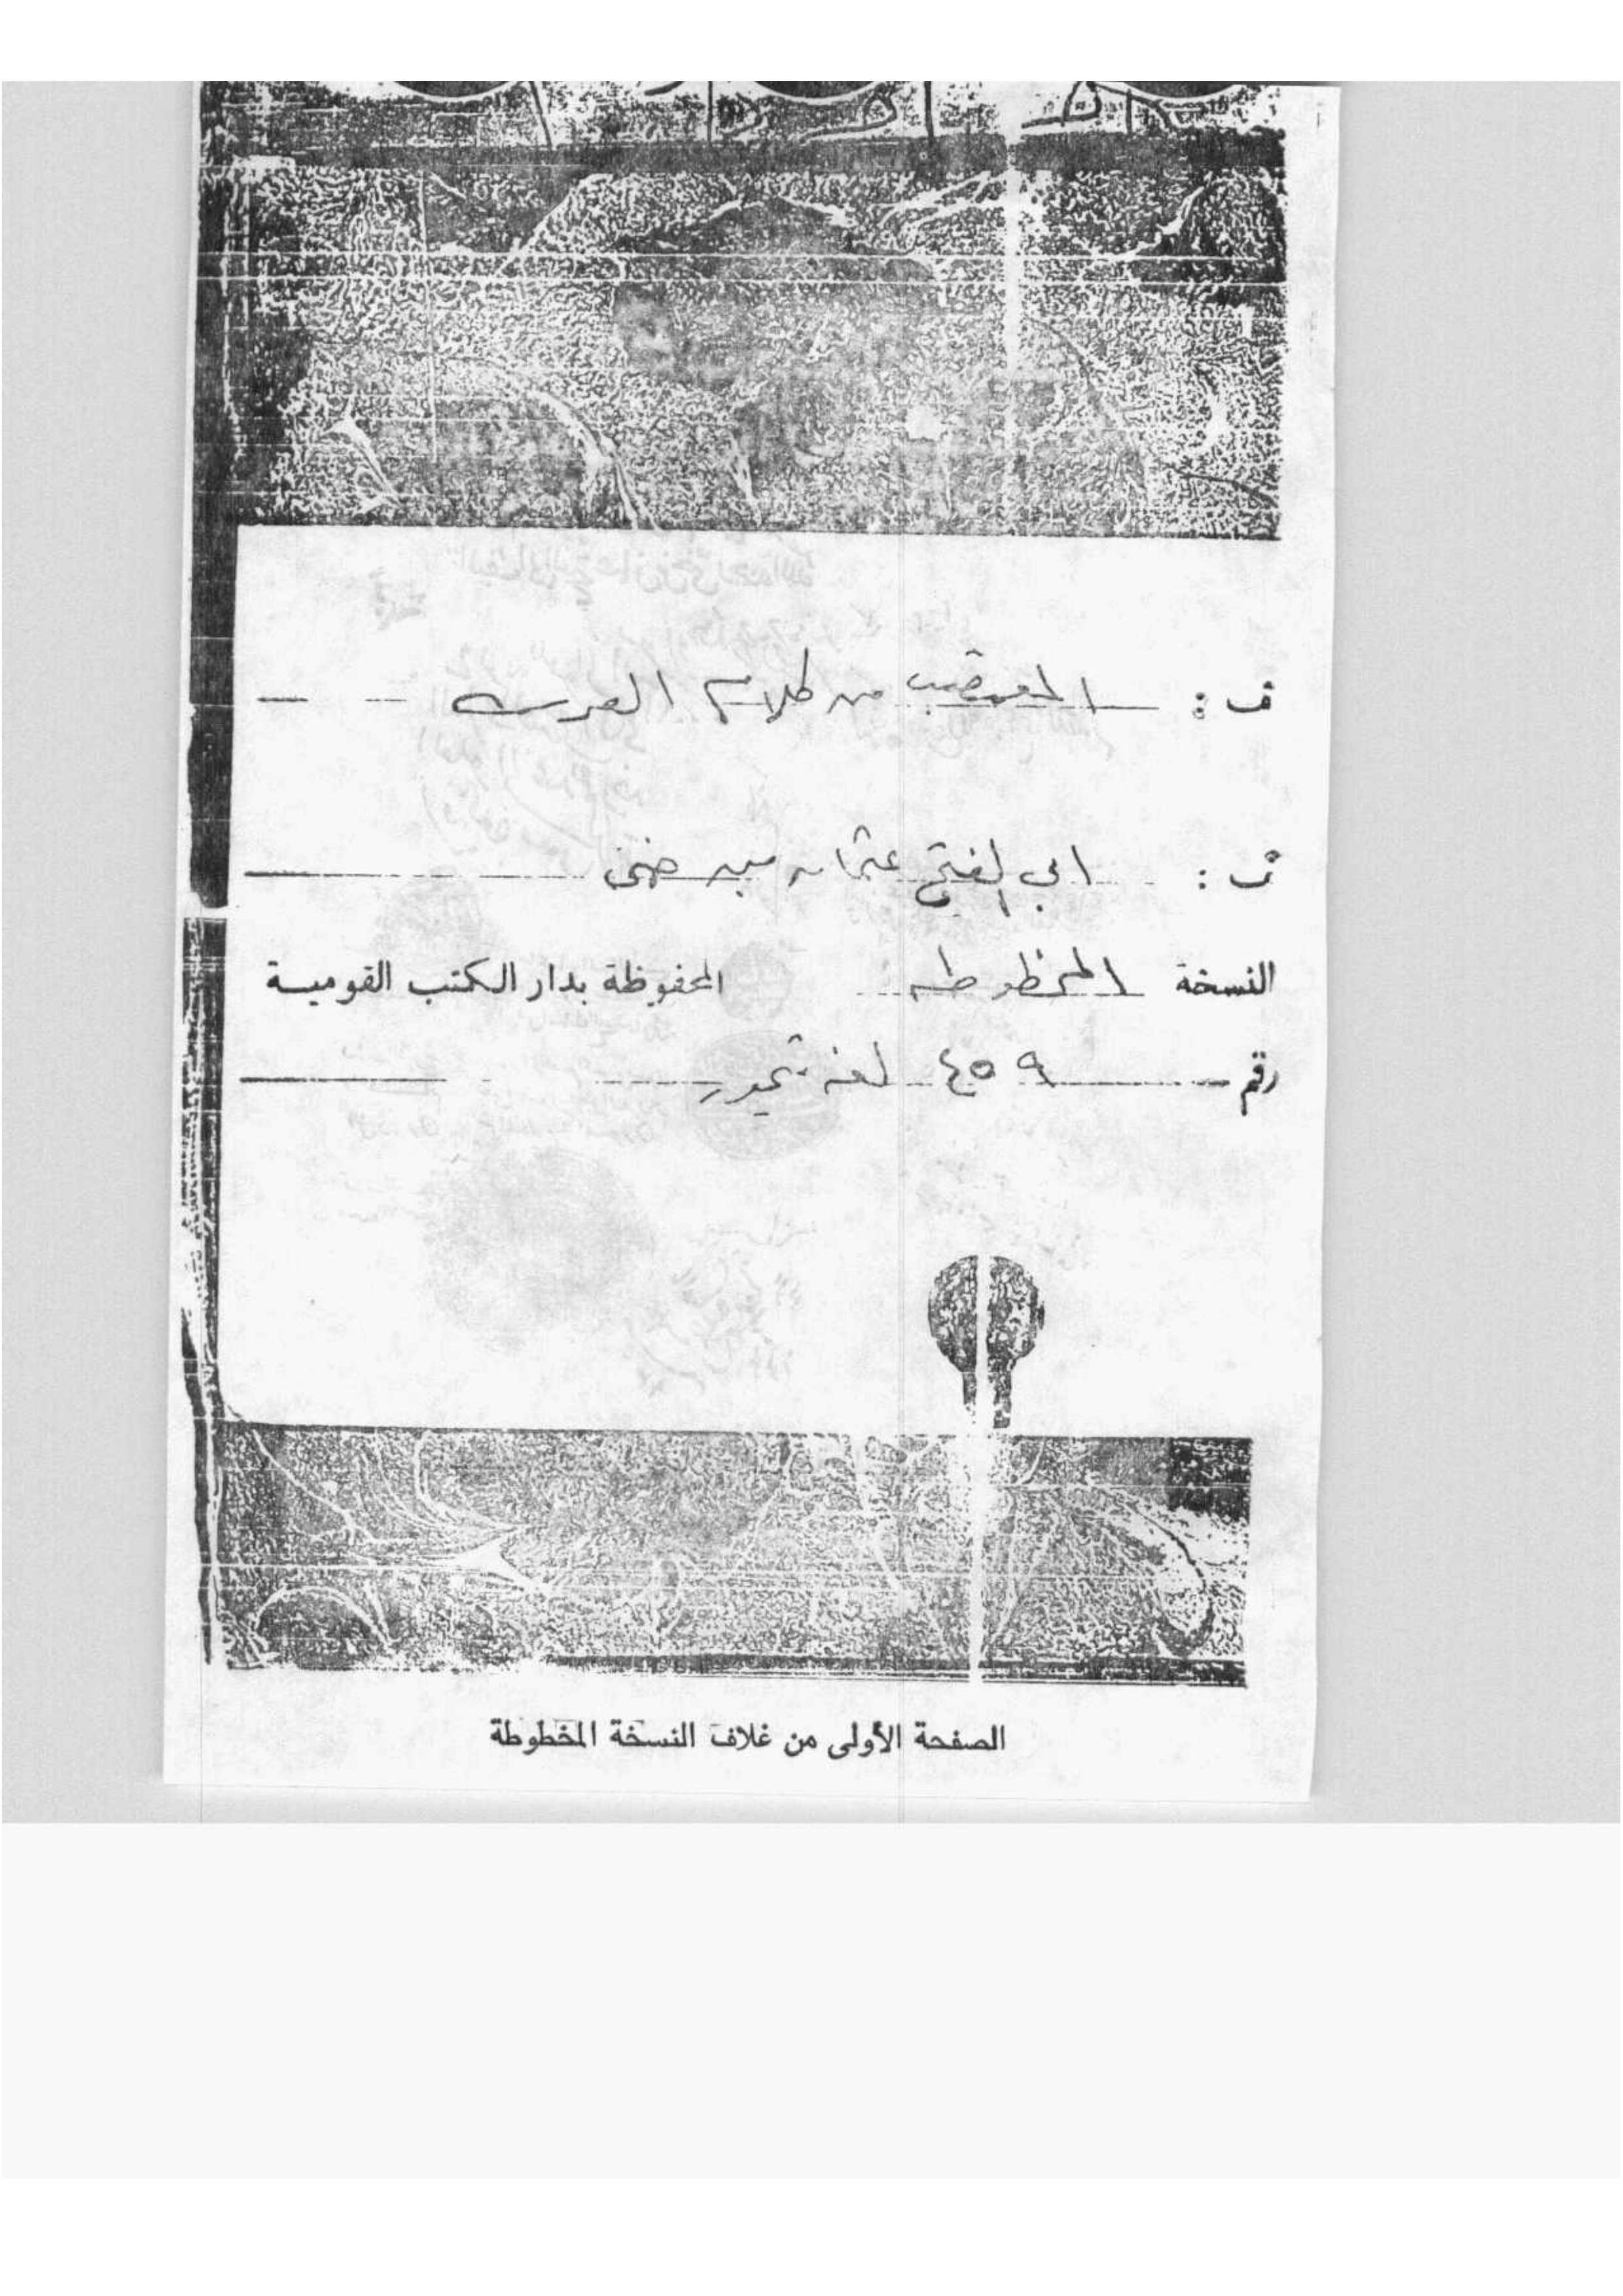 ف : المقتضب من كلام العرب
ف : ابي الفتح عثمان بن جنى
النسخة المخطوطه المحفوظة بدار الكتب القومية
رقم ٤٥٩ لغه تيمور
الصفحة الأولى من غلاف النسخة المخطوطة